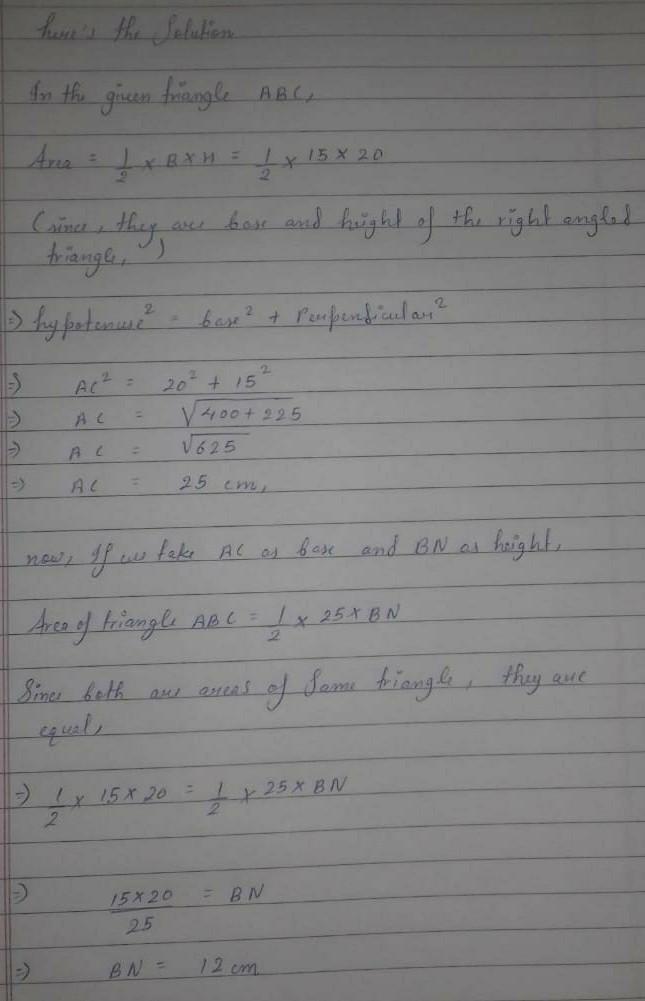 here's the Solution
In the given triangle ABC,
Area = 1/2 × B × H = 1/2 × 15 × 20
(since, they are base and height of the right angled
triangle,)
⇒ hypotenuse² = base² + Perpendicular²
⇒ AC² = 20² + 15²
⇒ AC = √400 + 225
⇒ AC = √625
⇒ AC = 25 cm,
now, If we take AC as base and BN as height,
Area of triangle ABC = 1/2 × 25 × BN
Since both are areas of Same triangle, they are
equal,
⇒ 1/2 × 15 × 20 = 1/2 × 25 × BN
⇒ 15×20/25 = BN
⇒ BN = 12 cm